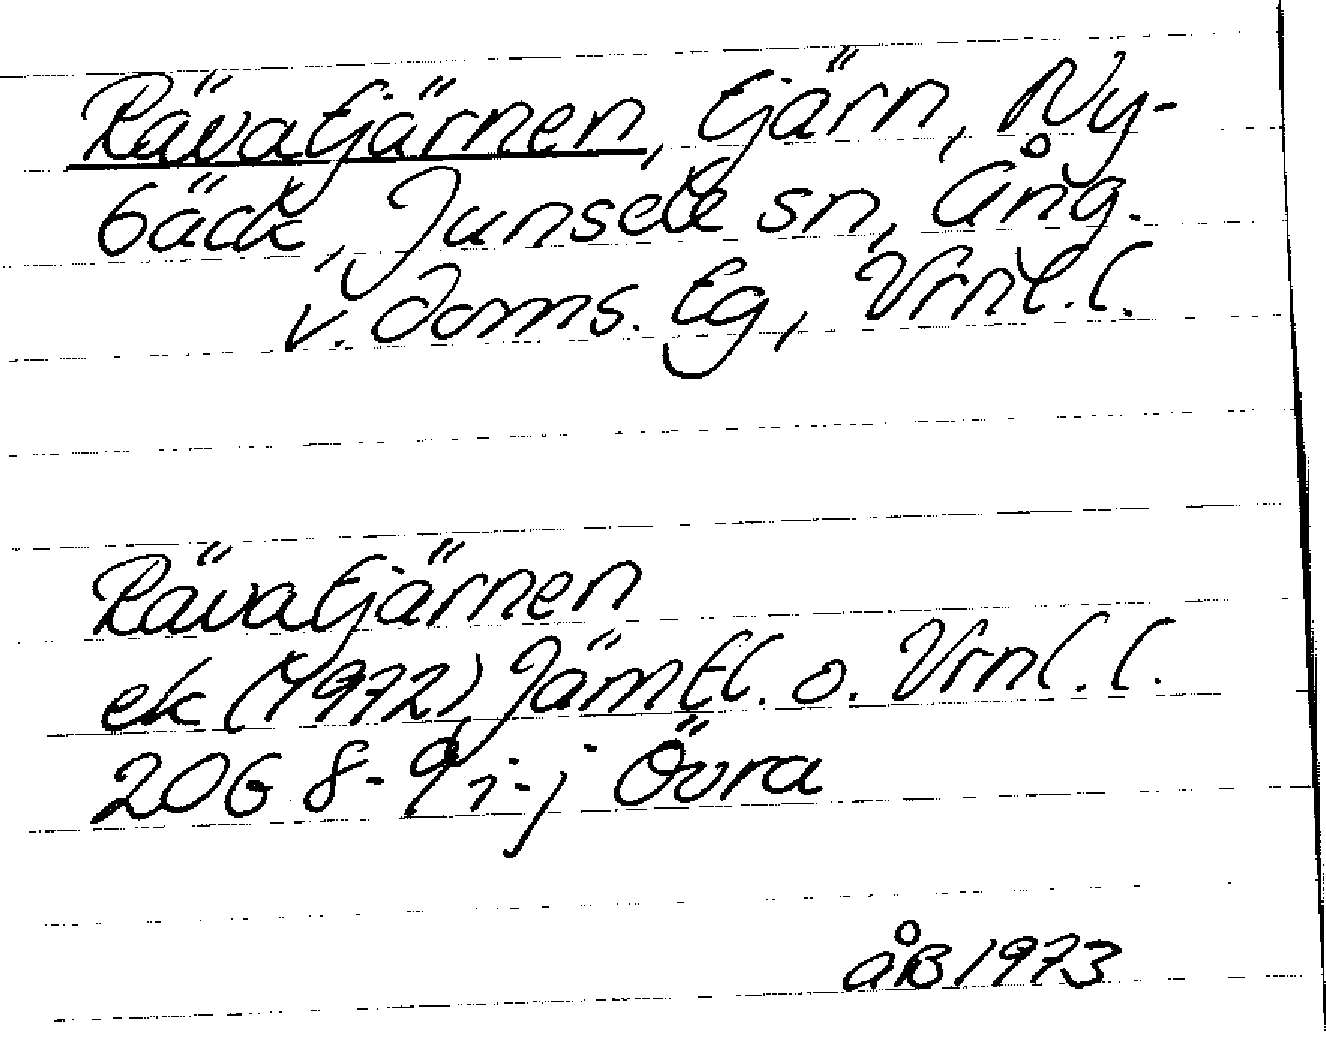 Rävatjärnen, tjärn, Ny-
bäck, Junsele sn, Ång.
v. doms. tg, Vrnl. l.
Rävatjärnen
ek (1972) Jämtl. o. Vrnl. l.
20G 8-9 i-j Övra
åB 1973